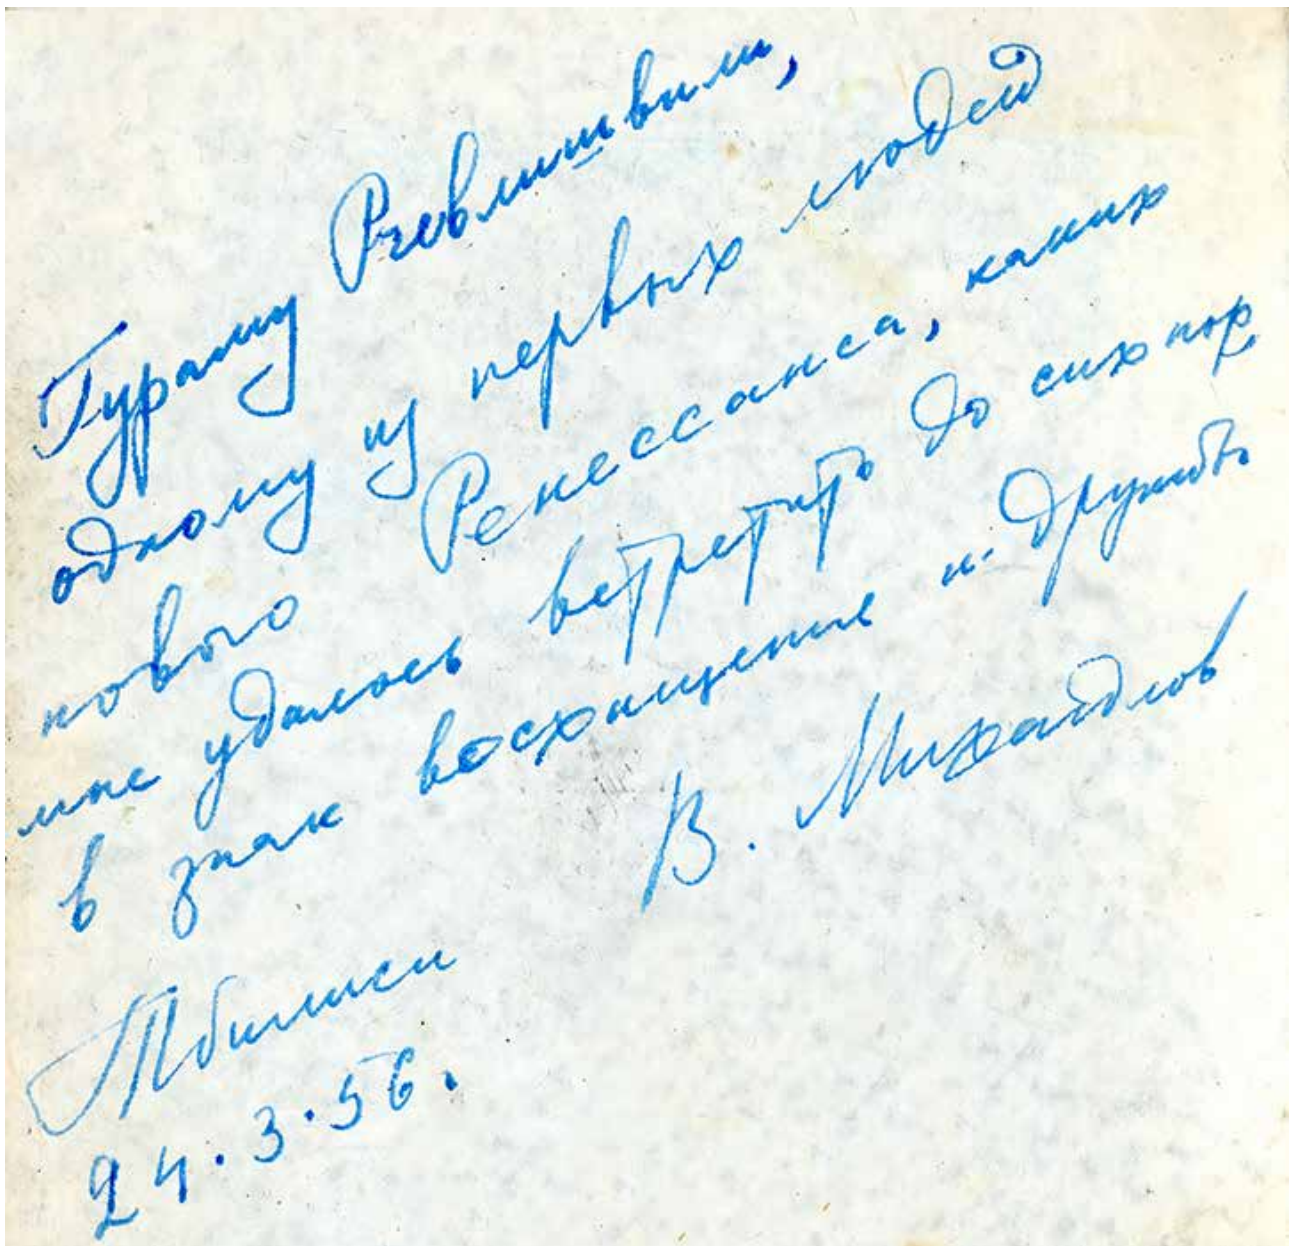 Гураму Рчевлишвили,
одному из первых людей
нового Ренессанса, каких
мне удалось встретить до сих пор
в знак восхищения и дружбы
В. Михайлов
Тбилиси
24.3.56.